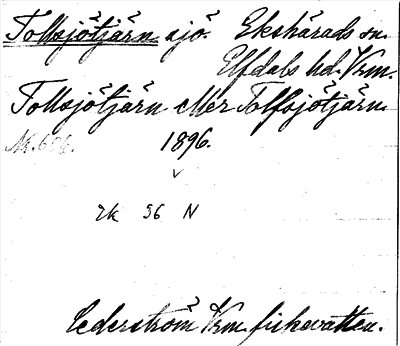 Tollsjötjärn sjö Ekshärads sn.
Elfdals hd. Vrm.
Tollsjötjärn eller Tolfsjötjärn.
1896.
rk 96 N
Cederström Vrm. fiskevatten.